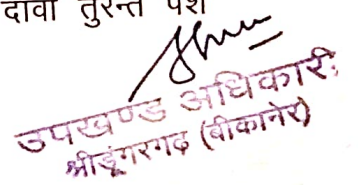 दावा तुरन्त पेश
उपखण्ड अधिकारी,
श्रीडूंगरगढ़ (बीकानेर)